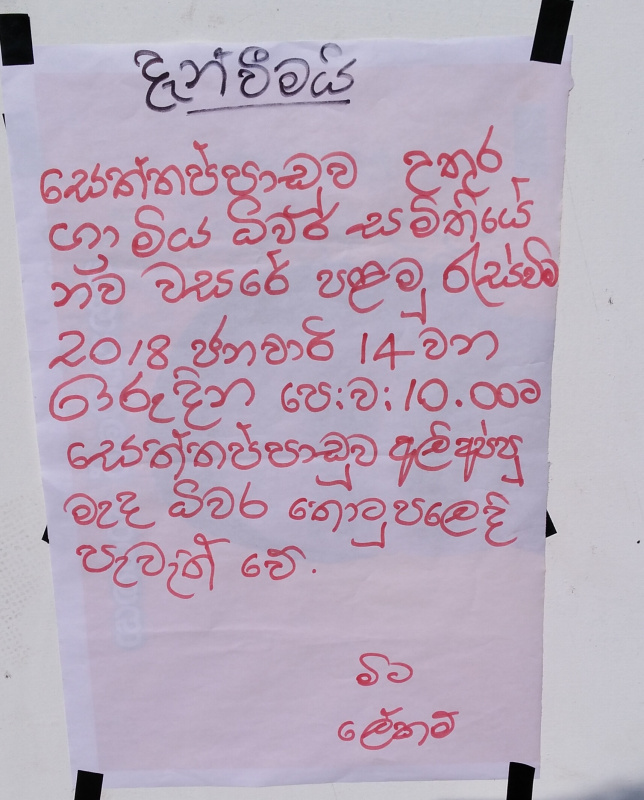 දැන්වීමයි
සෙත්තප්පාඩුව උතුර
ග්‍රාමිය ධීවර සමිතියේ
නව වසරේ පළමු රැස්වීම
2018 ජනවාරි 14 වන
ඉරුදින පෙ:ව: 10.00ට
සෙත්තප්පාඩුව අලිඅප්පු
මැද ධීවර තොටුපලෙදි
පැවැත් වේ.
මීට
ලේකම්